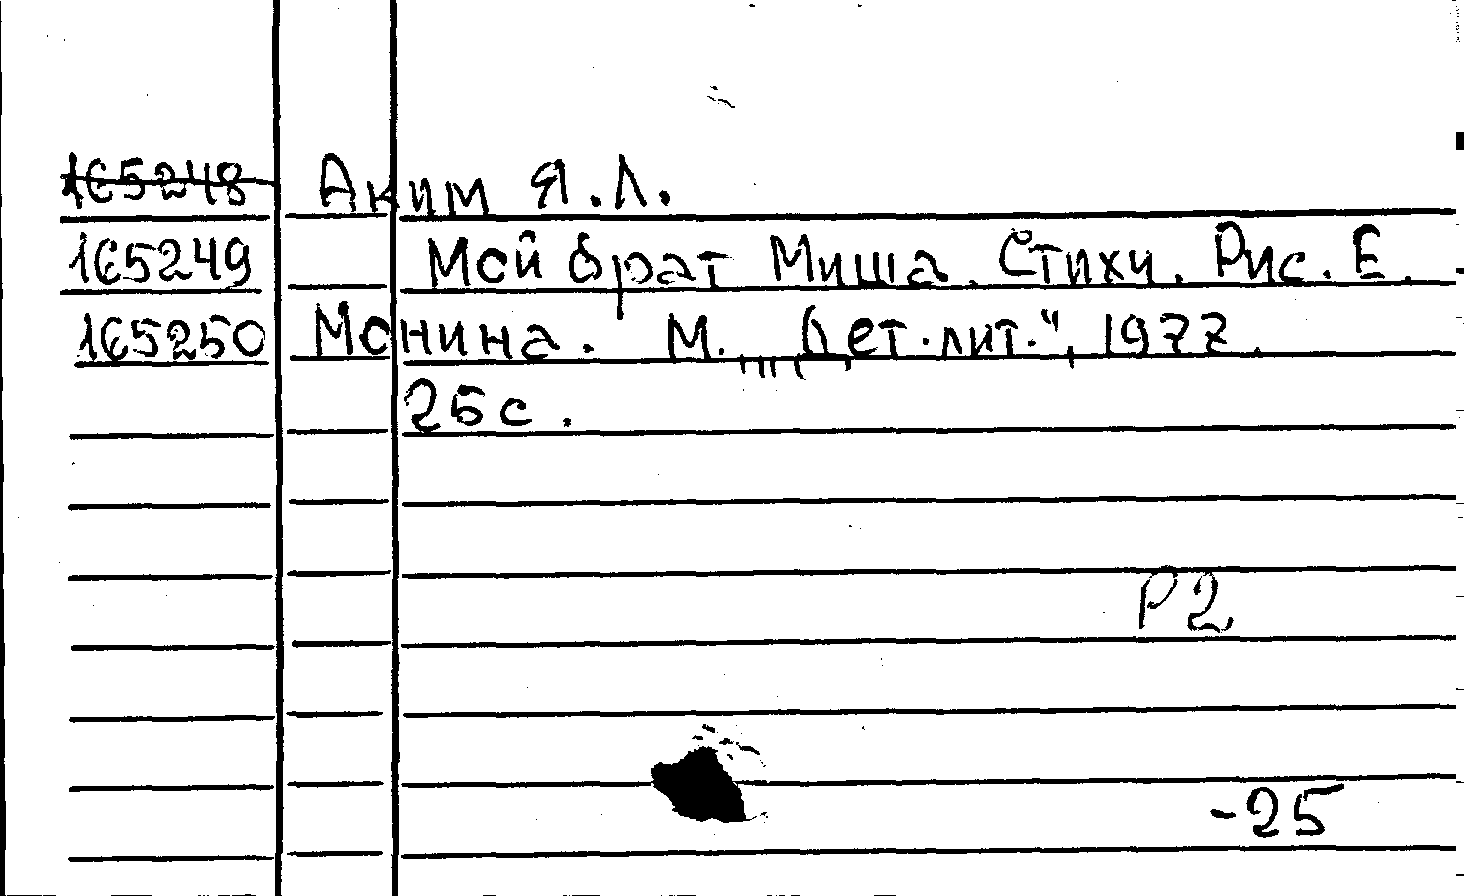 165248 Аким Я.Л.
165249 Мой брат Миша. Стихи. Рис. Е.
165250 Монина. М. „Дет.лит.", 1977.
25с.
Р2
-25